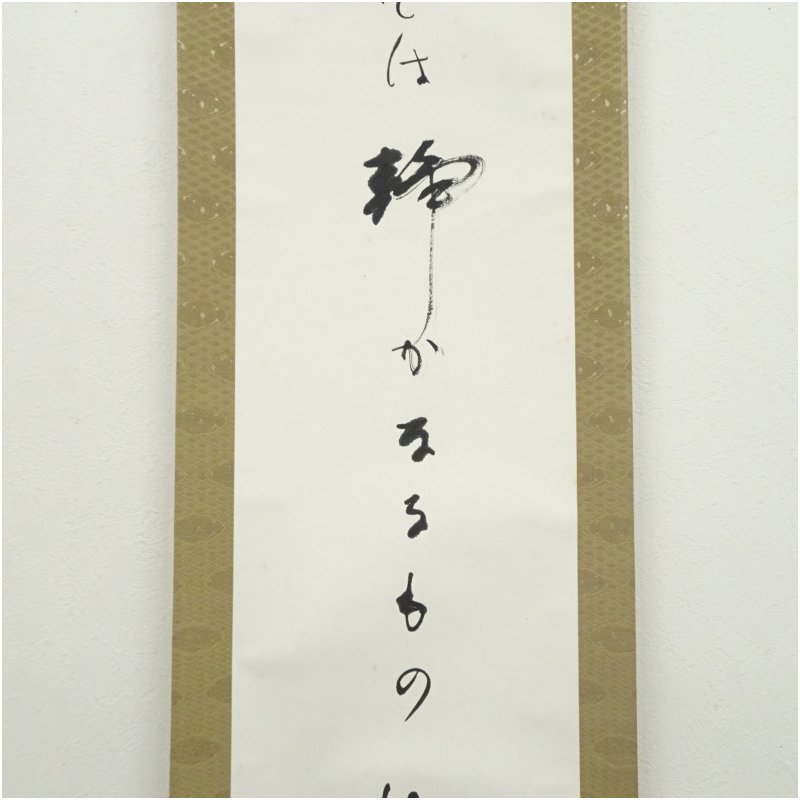 は静かなるもの